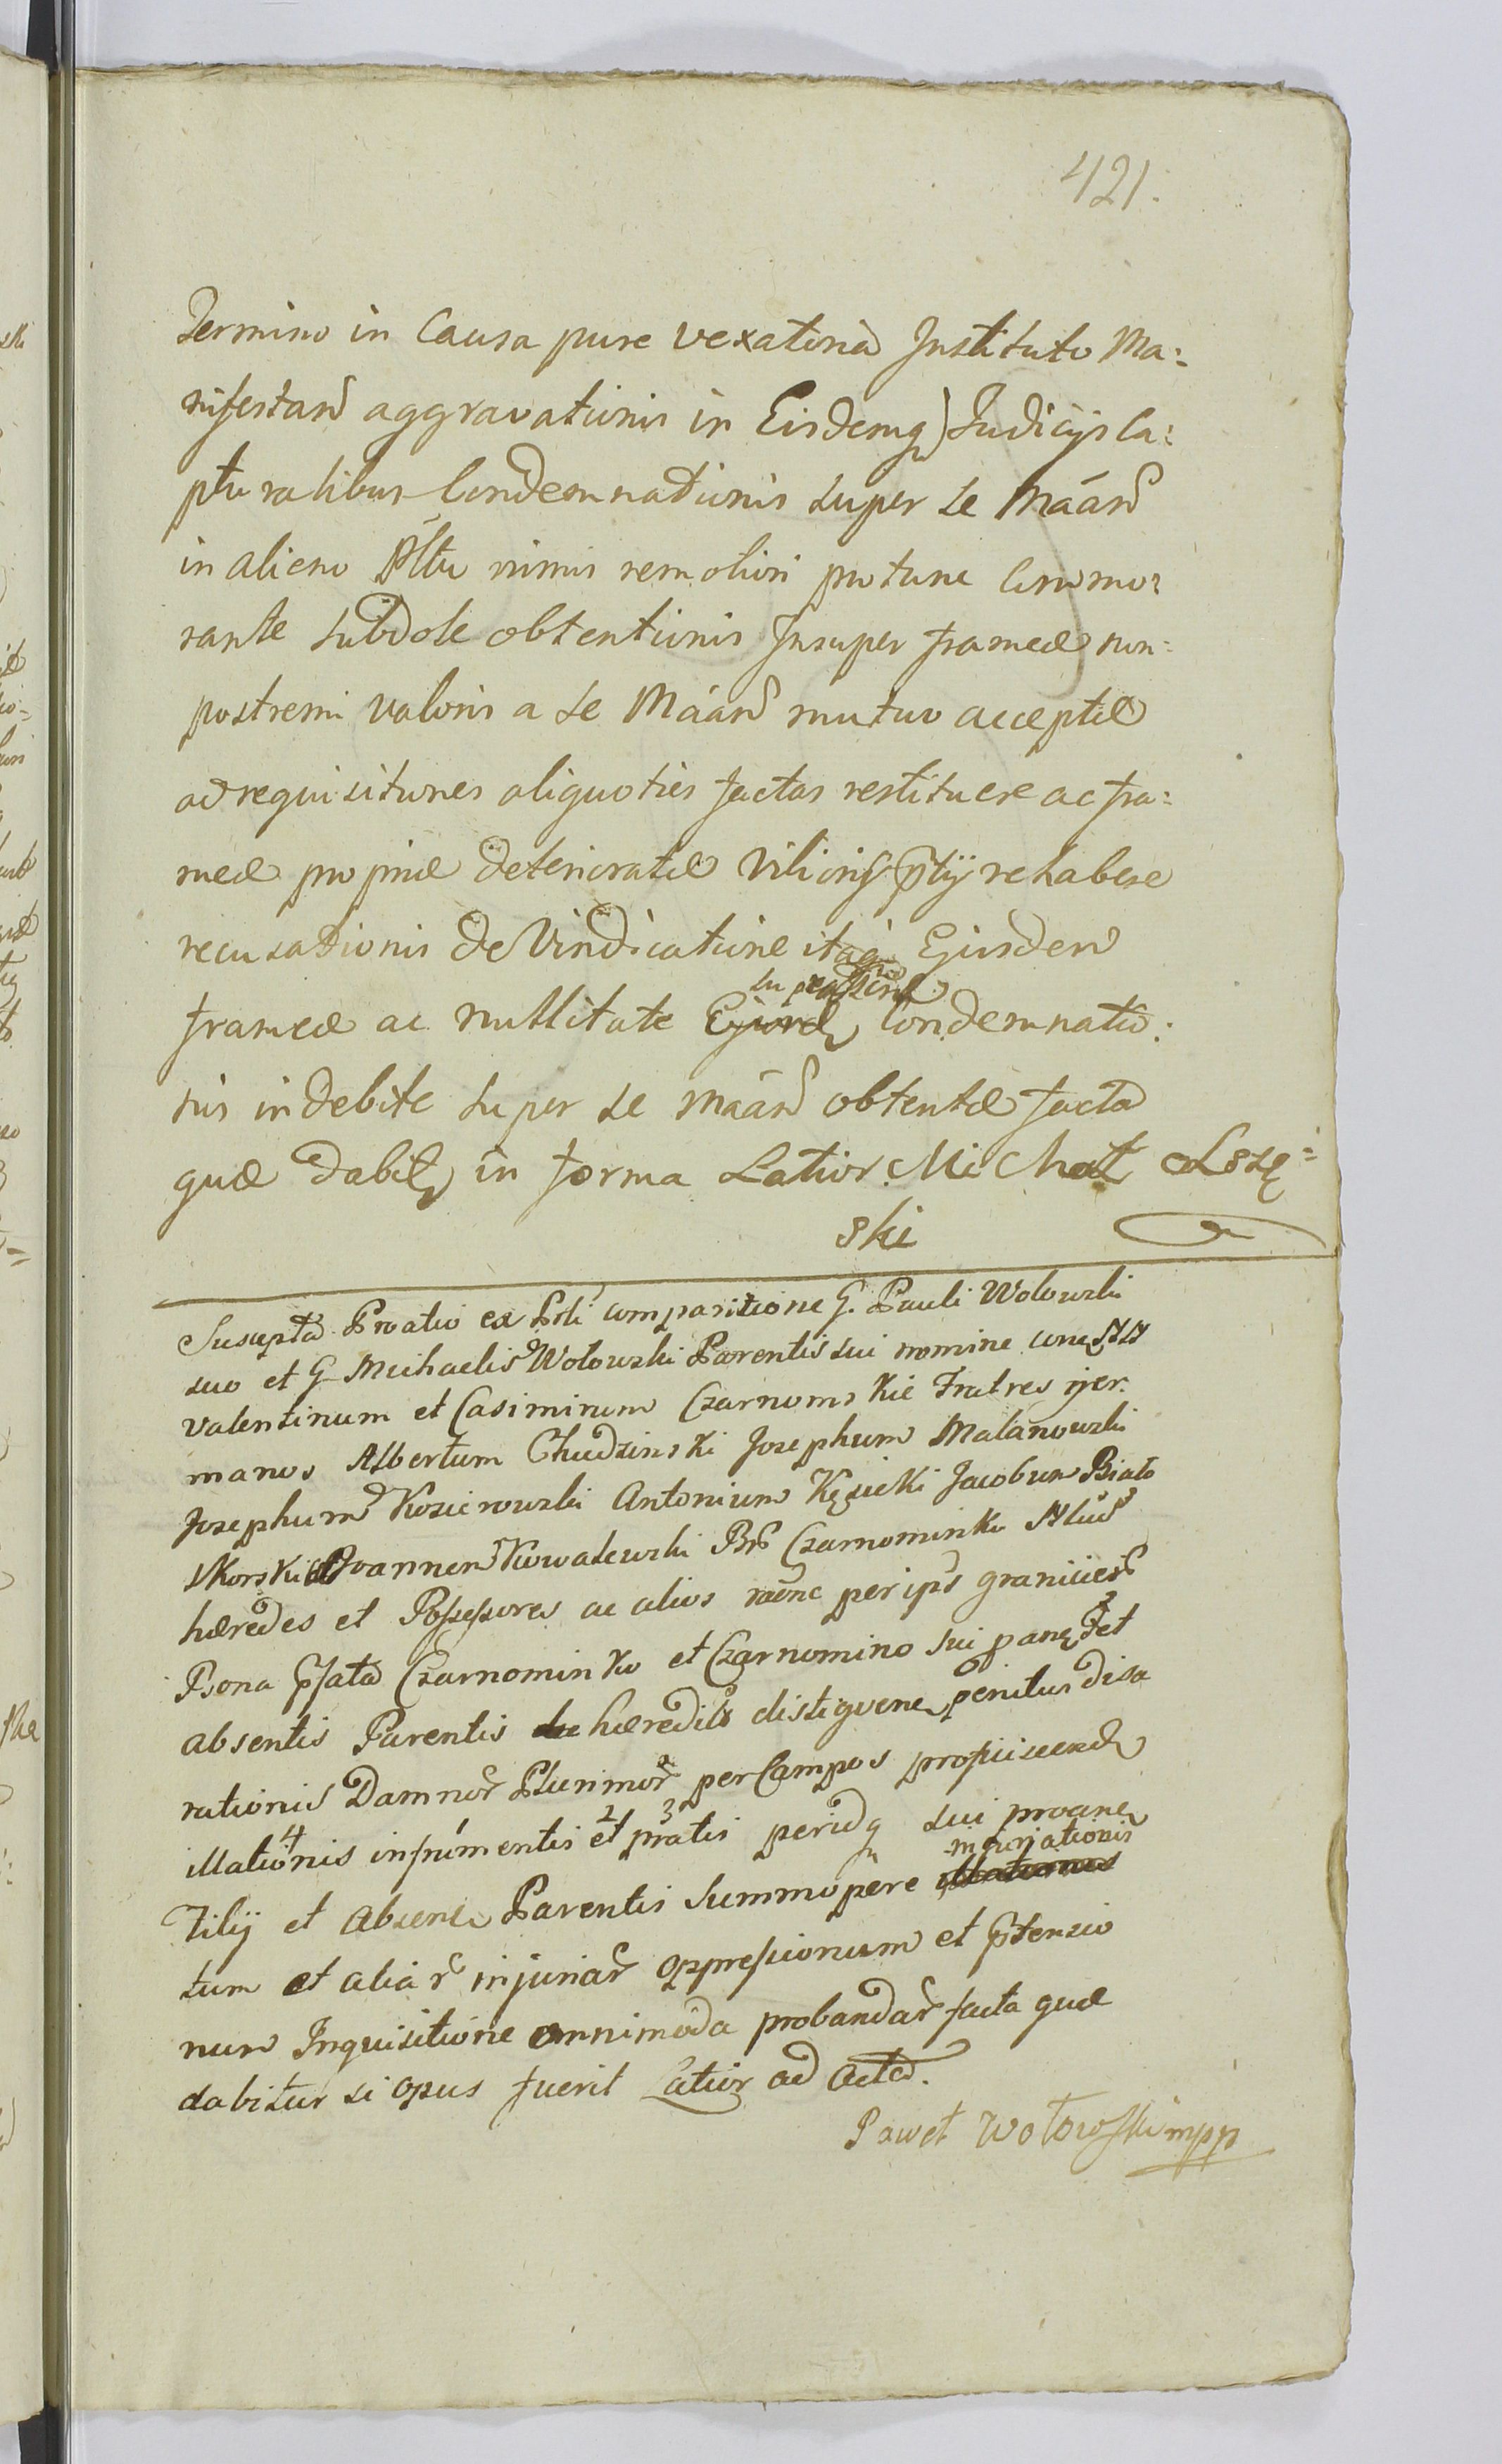 421.
Termino in Causa pure vexatoria Instituto Ma:
nifestand aggravationis in Eisdemq Judicijs Ca:
pturalibus Condemnationis super se Máánd
in alieno Pltu nimis remotiori protunc Commo:
rante subdole obtentionis Insuper frameæ non-
postremi valoris a se Máánd mutuo acceptæ
ad requisitiones aliquoties factas restituere ac fra:
meæ propriæ deterioratæ vilioris ptij rehabere
recusationis de Vindicatione itaq Ejusdem
frameæ ac nullitate supra Condemnatio:
nis indebite super se máánd obtentæ facta
quæ dabit in forma Latior. Michał Łszę=
ski
Suscepta Protio ex Prli comparitione G. Pauli Wolowski
suo et G Michaelis Wołowski Parentis sui nomine cone NN
Valentinum et Casimirum Czarnoms kie Fratres ger.
manos Albertum Chudzinski Josephum Malanowski
Josephum Kosierowski Antonium Kęsicki Jacobum Biało
skorski Joannem Kowalewski Br Czarnominko Nlius
hæredes et Possessores ac alios raõne per ipś granicies
Bona pfata Czarnominko et Czarnomino sui pane et
absentis Parentis hæredits distiguene penitus disa
rationis Damnor Plurimor per Campos proficiscend
illationis 4 infrumentis et 2 pratis 3 peridq sui proane
Filij et Absene Parentis Summopere illationis minationis
tum et aliar injuriar oppressionum et ptensio
num Inquisitione omnimoda probandar facta quæ
dabitur si opus fuerit Latior ad Acta.
Paweł Wołowski mpp